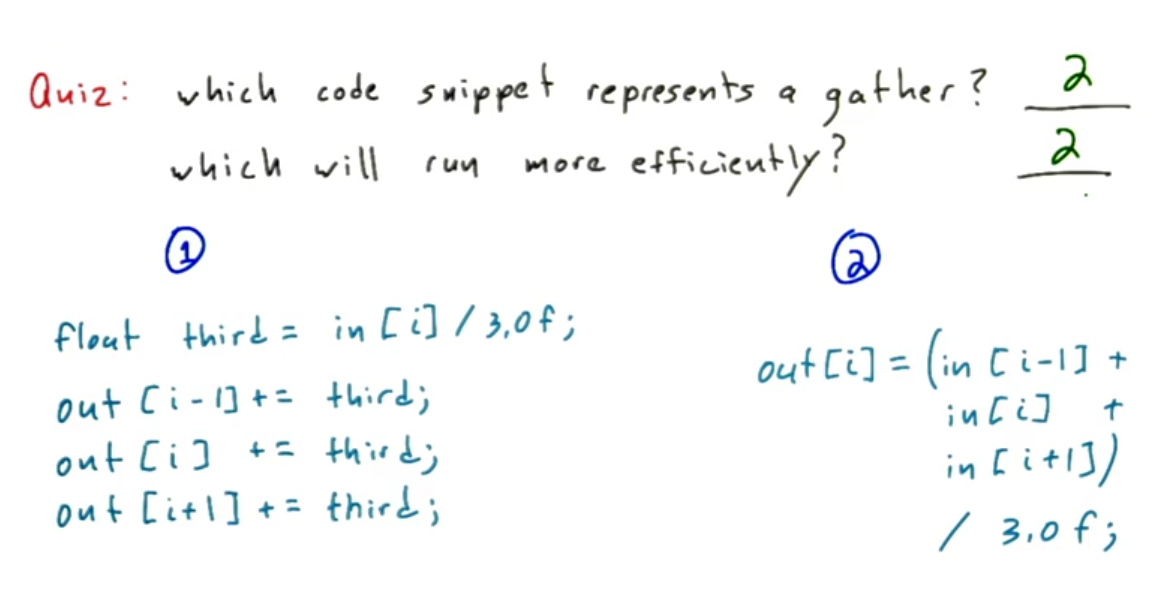 Quiz: which code snippet represents a gather? 2
which will run more efficiently? 2
1
float third = in [i] / 3.0f;
out [i-1] += third;
out [i] += third;
out [i+1] += third;
2
out[i] = (in [i-1] +
in[i] +
in [i+1])
/ 3.0f;